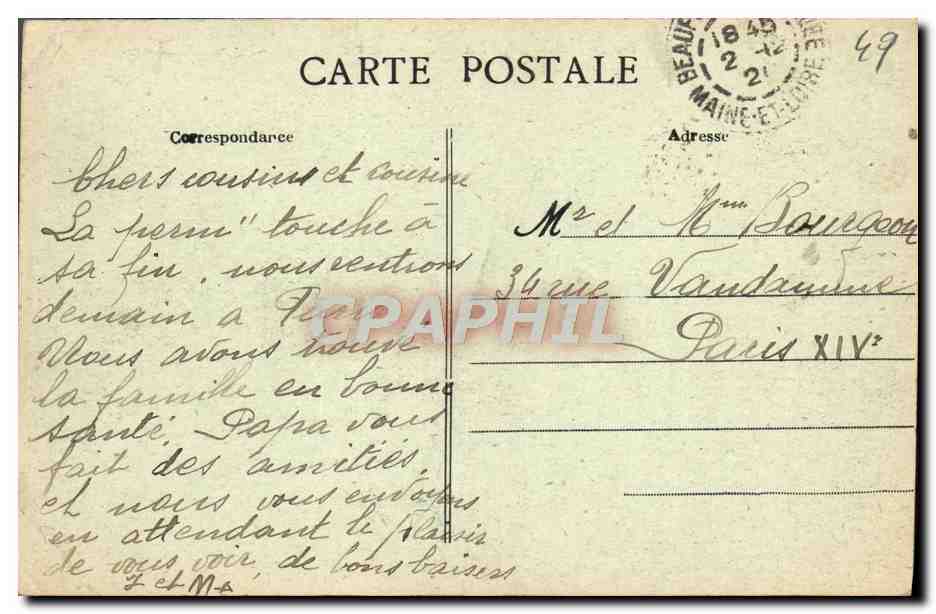 CARTE POSTALE
49
18 45
2 -12
21
MAINE-ET-LOIRE
Correspondance
Adresse
Chers cousins et cousine
La perm" touche à
sa fin, nous rentrons
demain à
Vous avons trouvé
la famille en bonne
santé. Papa vous
fait des amitiés,
et nous vous envoyons
en attendant le plaisir
de vous voir, de bons baisers
et
Mr et Mme Bourgeon
34 rue Vandamme
Paris XIVe
CPAPHIL